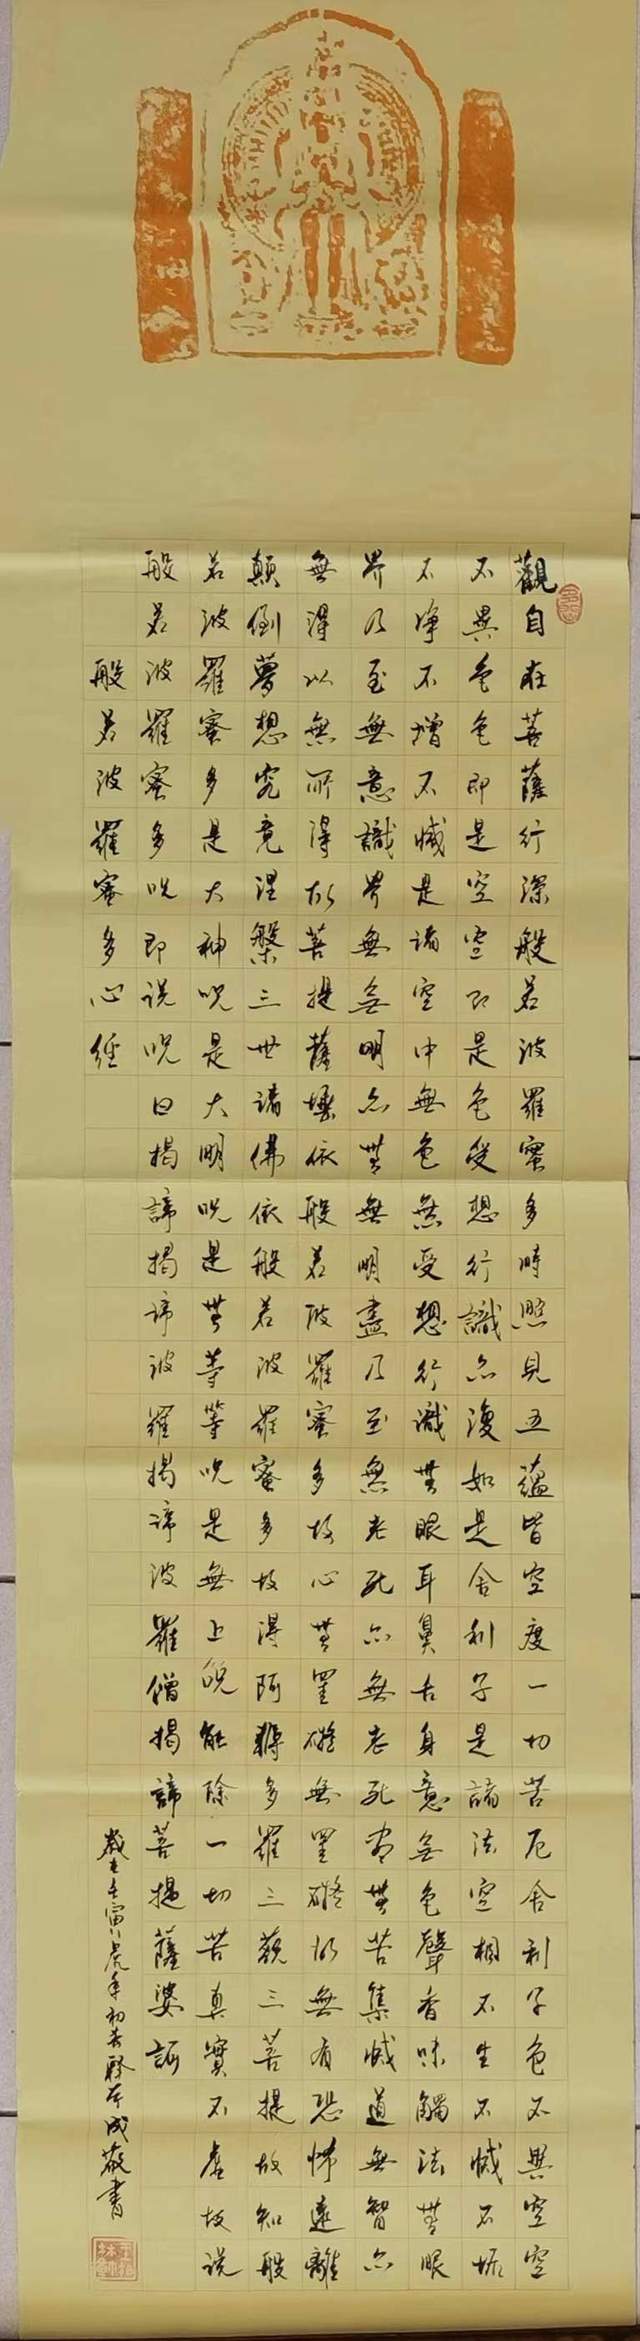 觀自在菩薩行深般若波羅蜜多時照見五蘊皆空度一切苦厄舍利子色不異空空
不異色色即是空空即是色受想行識亦復如是舍利子是諸法空相不生不滅不垢
不淨不增不減是諸空中無色無受想行識無眼耳鼻舌身意無色聲香味觸法無眼
界乃至無意識界無無明亦無無明盡乃至無老死亦無老死盡無苦集滅道無智亦
無得以無所得故菩提薩埵依般若波羅蜜多故心無罣礙無罣礙故無有恐怖遠離
顛倒夢想究竟涅槃三世諸佛依般若波羅蜜多故得阿耨多羅三藐三菩提故知般
若波羅蜜多是大神呪是大明呪是無等等呪是無上呪能除一切苦真實不虛故說
般若波羅蜜多呪即說呪曰揭諦揭諦波羅揭諦波羅僧揭諦菩提薩婆訶
般若波羅蜜多心經
歲在壬寅虎年初春釋本成敬書